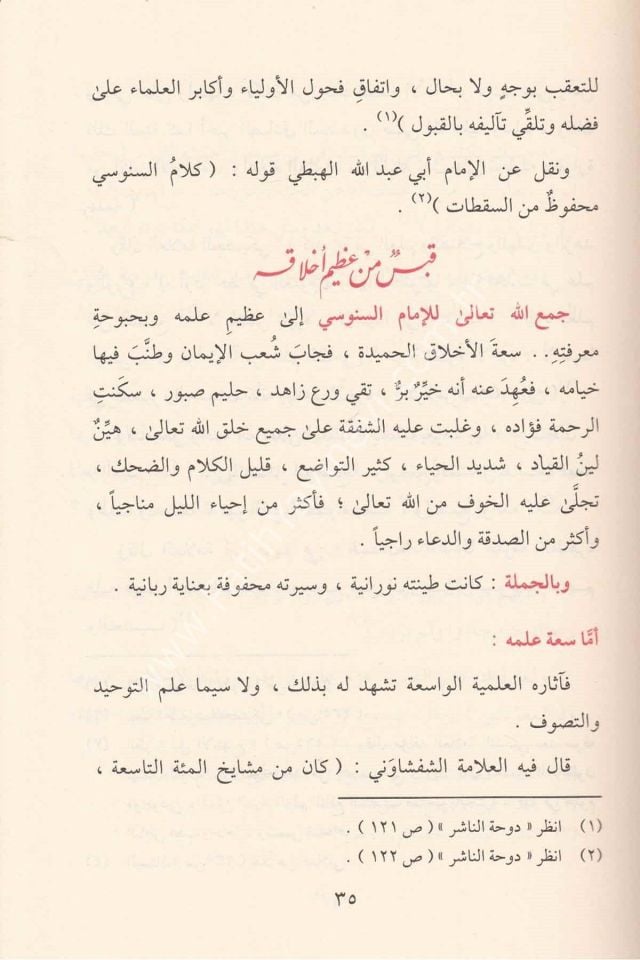 للتعقب بوجهٍ ولا بحال ، واتفاقِ فحول الأولياء وأكابر العلماء علىٰ
فضله وتلقِّي تآليفه بالقبول )(١) .
ونقل عن الإمام أبي عبد الله الهبطي قوله : ( كلامُ السنوسي
محفوظٌ من السقطات )(٢) .
قبسٌ من عظيم أخلاقه
جمع الله تعالىٰ للإمام السنوسي إلىٰ عظيمِ علمه وبحبوحةِ
معرفتِهِ.. سعةَ الأخلاق الحميدة ، فجابَ شُعب الإيمان وطنَّبَ فيها
خيامه ، فعُهِدَ عنه أنه خيِّرٌ برٌّ ، تقي ورع زاهد ، حليم صبور ، سكَنتِ
الرحمة فؤاده ، وغلبت عليه الشفقة علىٰ جميع خلق الله تعالىٰ ، هيِّنٌ
لينُ القياد ، شديد الحياء ، كثير التواضع ، قليل الكلام والضحك ،
تجلَّىٰ عليه الخوف من الله تعالىٰ ؛ فأكثر من إحياء الليل مناجياً ،
وأكثر من الصدقة والدعاء راجياً .
وبالجملة : كانت طينته نورانية ، وسيرته محفوفة بعناية ربانية .
أمَّا سعة علمه :
فآثاره العلمية الواسعة تشهد له بذلك ، ولا سيما علم التوحيد
والتصوف .
قال فيه العلامة الشفشاوَني : ( كان من مشايخ المئة التاسعة ،
(١) انظر « دوحة الناشر » ( ص ١٢١ ) .
(٢) انظر « دوحة الناشر » ( ص ١٢٢ ) .
٣٥